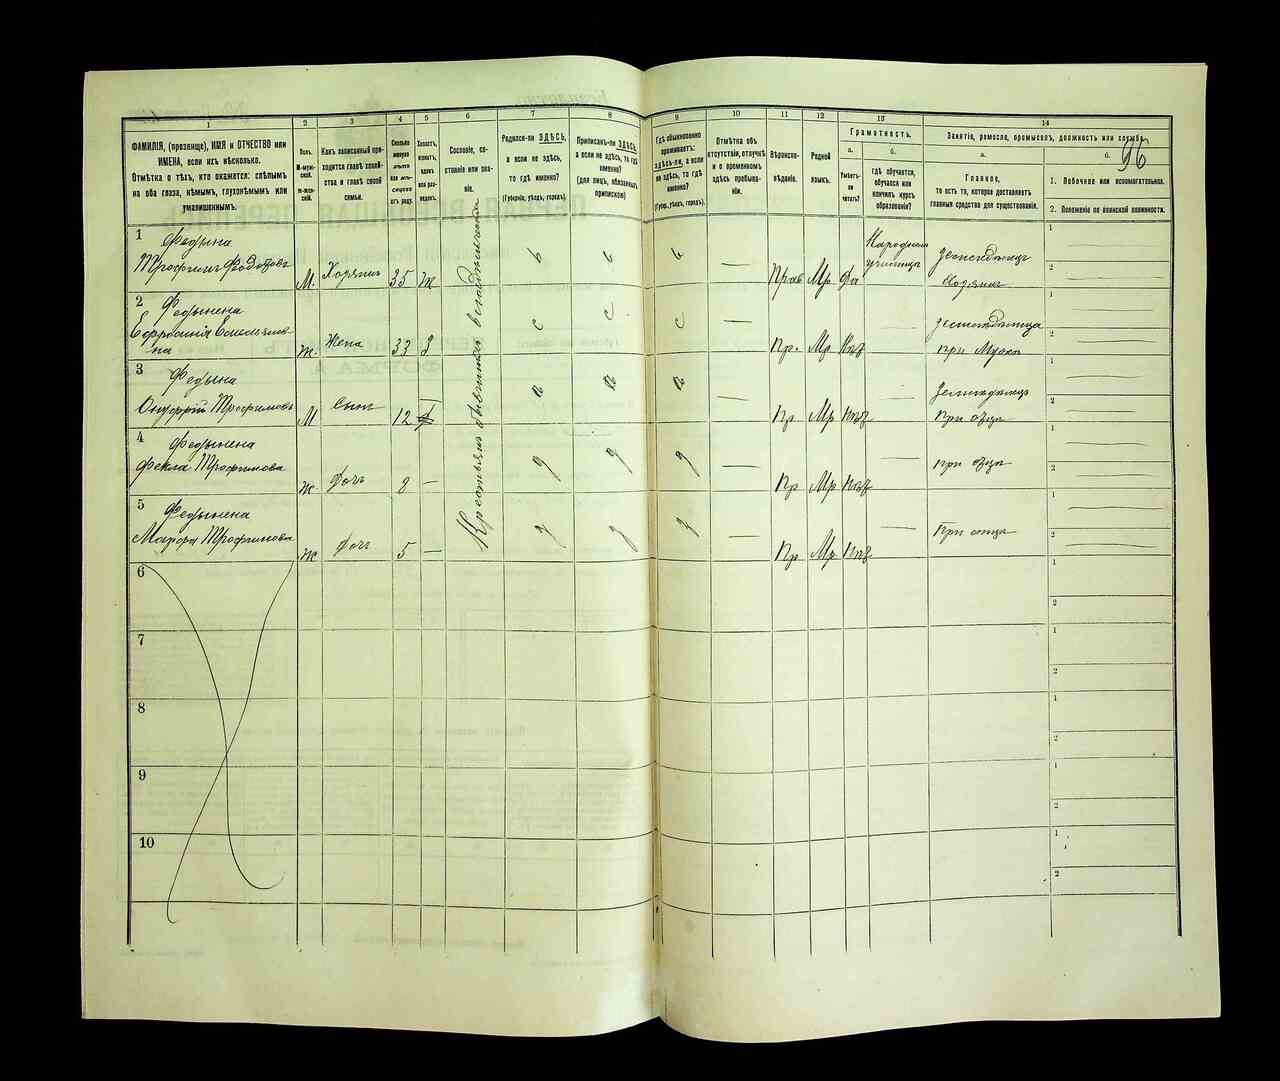 96
1
2
3
4
5
6
7
8
9
10
11
12
13
14
ФАМИЛІЯ, (прозвище), ИМЯ и ОТЧЕСТВО или
ИМЕНА, если ихъ нѣсколько.
Отмѣтка о тѣхъ, кто окажется: слѣпымъ
на оба глаза, нѣмымъ, глухонѣмымъ или
умалишеннымъ.
Полъ.
М-муж-
ской.
Ж-жен-
скій.
Какъ записанный при-
ходится главѣ хозяй-
ства и главѣ своей
семьи.
Сколько
минуло
лѣтъ
или мѣ-
сяцевъ
отъ роду.
Холостъ,
женатъ,
вдовъ
или раз-
веденъ.
Сословіе, со-
стояніе или зва-
ніе.
Родился-ли ЗДѢСЬ,
а если не здѣсь,
то гдѣ именно?
(Губернія, уѣздъ, городъ).
Приписанъ-ли ЗДѢСЬ,
а если не здѣсь, то гдѣ
именно?
(для лицъ, обязанныхъ
припискою)
Гдѣ обыкновенно
проживаетъ:
здѣсь-ли, а если
не здѣсь, то гдѣ
именно?
(Губерн., уѣздъ, городъ).
Отмѣтка объ
отсутствіи, отлучкѣ
и о временномъ
здѣсь пребыва-
ніи.
Вѣроиспо-
вѣданіе.
Родной
языкъ.
Грамотность.
а.
Умѣетъ-
ли
читать?
б.
гдѣ обучается,
обучался или
кончилъ курсъ
образованія?
Занятіе, ремесло, промыселъ, должность или служба.
а.
Главное,
то есть то, которое доставляетъ
главныя средства для существованія.
б.
1. Побочное или вспомогательное.
2. Положеніе по воинской повинности.
1
Федына
Трофимъ Федотовъ
М. Хозяинъ 35 ж
Прав Мр Да
Народномъ
училище
Земледелецъ
Хозяинъ
1
2
2
Федынена
Ефросинія Емельянов-
на
Ж. Жена 33 З
с с с —
Пр. Мр Нѣт —
Земледелица
при Мужѣ
1
2
3
Федына
Онуфрій Трофимовъ
М Сынъ 12
Пр Мр Нѣт —
Земледелецъ
При отцѣ
1
2
4
Федынена
Фекла Трофимова
Ж Дочь 8 —
д д д —
Пр Мр Нѣт —
при отцѣ
1
2
5
Федынена
Марфа Трофимова
Ж Дочь 5 —
д д д —
Пр Мр Нѣт —
При отцѣ
1
2
Крестьянъ бывшихъ
6
1
2
7
1
2
8
1
2
9
1
2
10
1
2